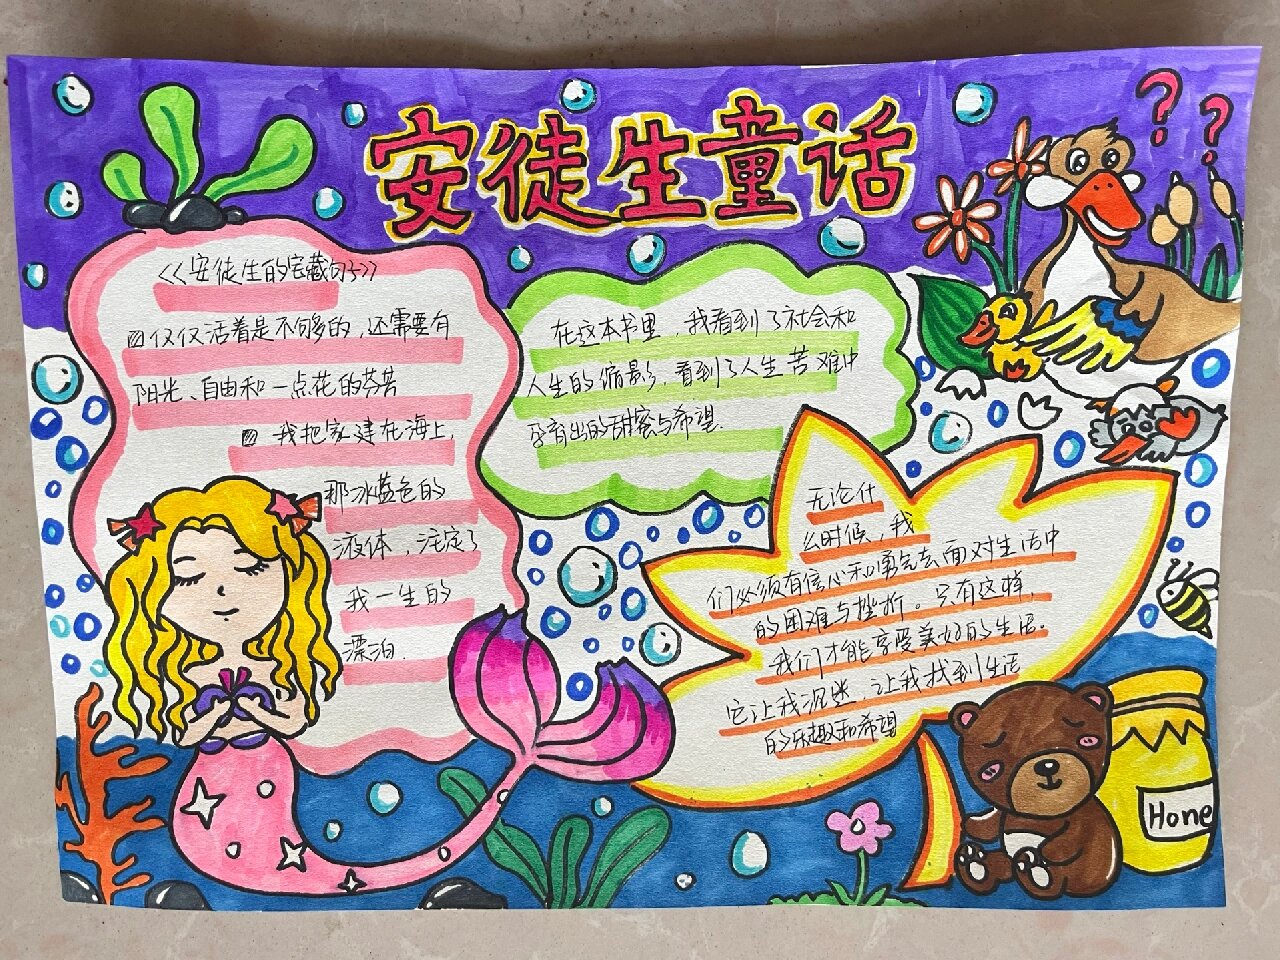 安徒生童话
<<安徒生的宝藏句子>>
仅仅活着是不够的,还需要有
阳光、自由和一点花的芬芳
我把家建在海上,
那冰蓝色的
液体,注定了
我一生的
漂泊.
在这本书里,我看到了社会和
人生的缩影,看到了人生苦难中
孕育出的甜蜜与希望.
无论什
么时候,我
们必须有信心和勇气去面对生活中
的困难与挫折。只有这样,
我们才能享受美好的生活。
它让我沉迷,让我找到生活
的乐趣和希望
? ?
Hone